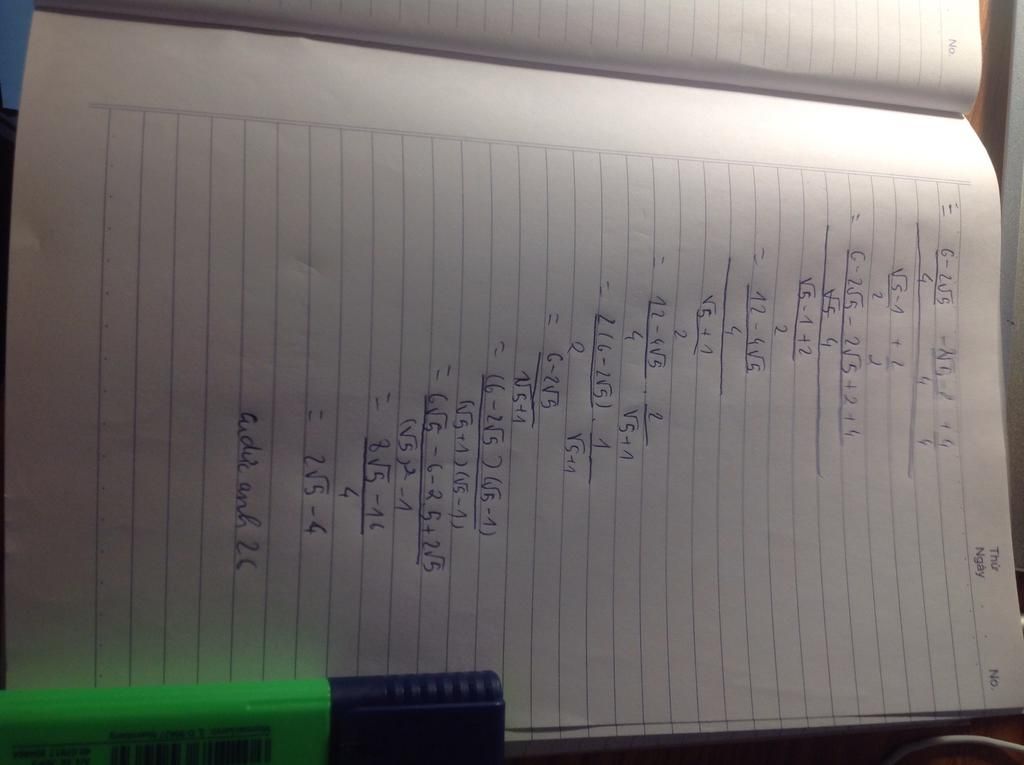 No.
Thứ
Ngày
No.
= 6-2√5/4 - 2√5-2/4 + 4/4
√5-1/2 + 2/2
= 6-2√5-2√5+2+4/4
√5-1+2/2
= 12-4√5/4
√5+1/2
= 12-4√5/4 . 2/√5+1
= 2(6-2√5)/2 . 1/√5+1
= 6-2√5/√5+1
= (6-2√5)(√5-1)/(√5+1)(√5-1)
= 6√5-6-2.5+2√5/(√5)²-1
= 8√5-16/4
= 2√5-4